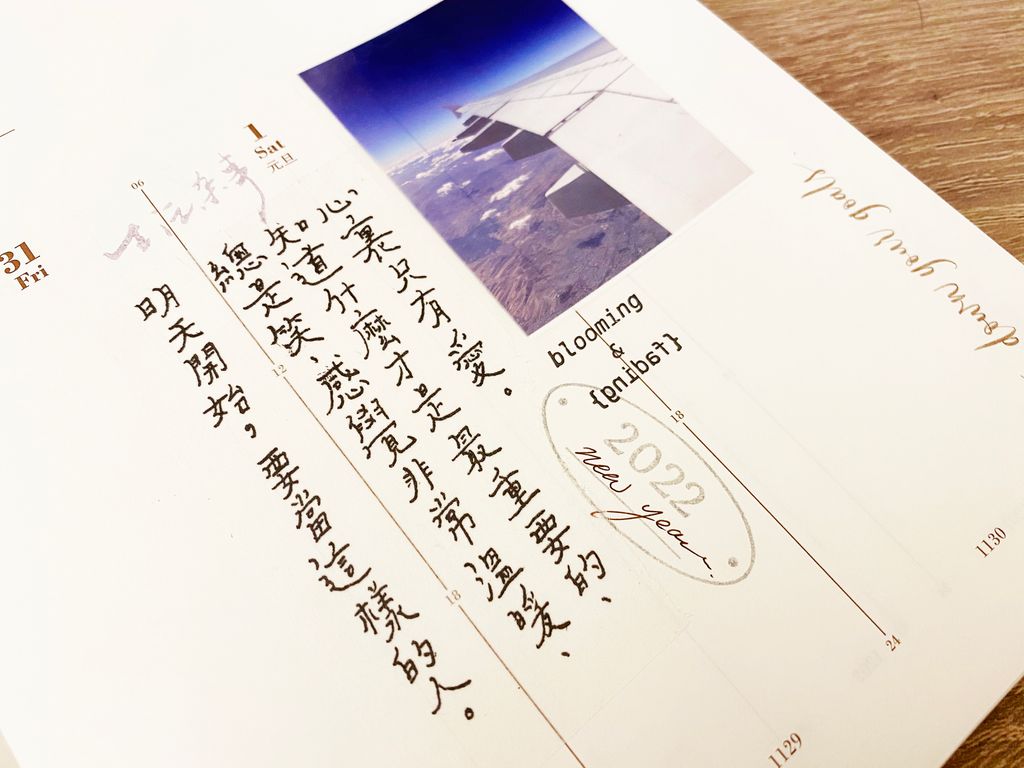 31
Fri
1
Sat
元旦
06
明天開始，要當這樣的人。
總是笑、感覺非常溫暖、
知道什麼才是最重要的、
心裏只有愛。
12
18
blooming
&
{fading}
2022
new year.
18
24
down your goals
1129
1130